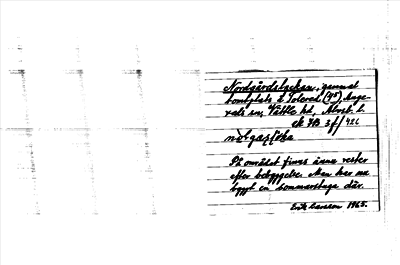 Nordgårdsbackan, gammal
tomtplats å Tolered (45), Ange-
reds sn, Vättle hd, Älvsb. l.
ek 7B 3f/421
nơrgaʂʂbka
På området finns ännu rester
efter bebyggelse. Man har nu
byggt en sommarstuga där.
Erik Carlsson 1965.